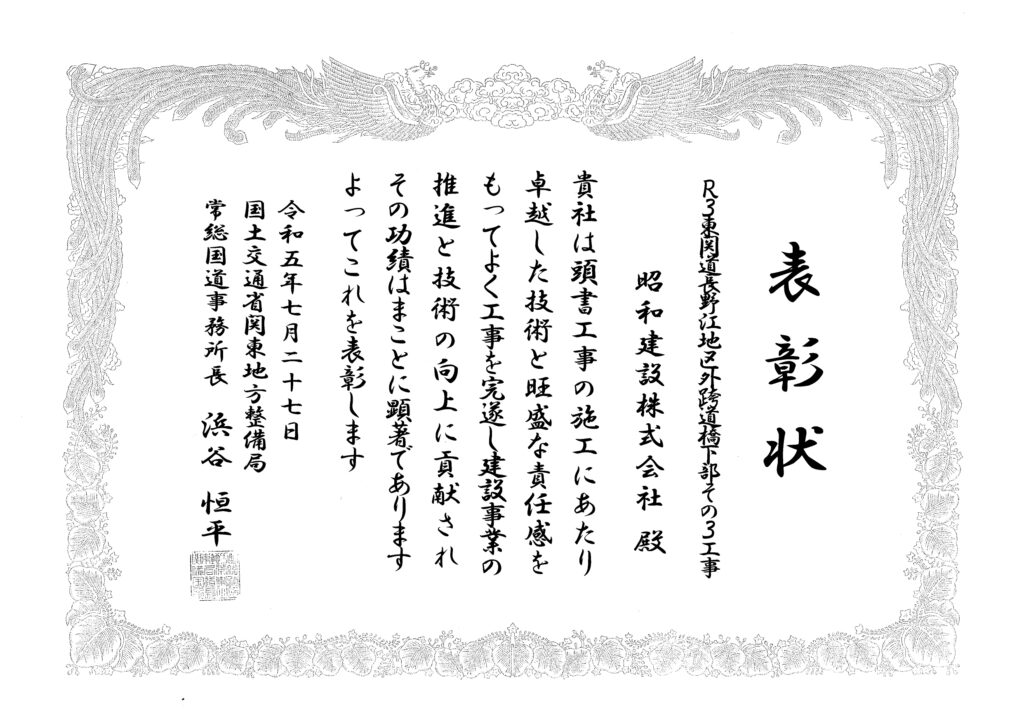 表彰状
R3東関道長野江地区外跨道橋下部その3工事
昭和建設株式会社 殿
貴社は頭書工事の施工にあたり
卓越した技術と旺盛な責任感を
もってよく工事を完遂し建設事業の
推進と技術の向上に貢献され
その功績はまことに顕著であります
よってこれを表彰します
令和五年七月二十七日
国土交通省関東地方整備局
常総国道事務所長 浜谷 恒平